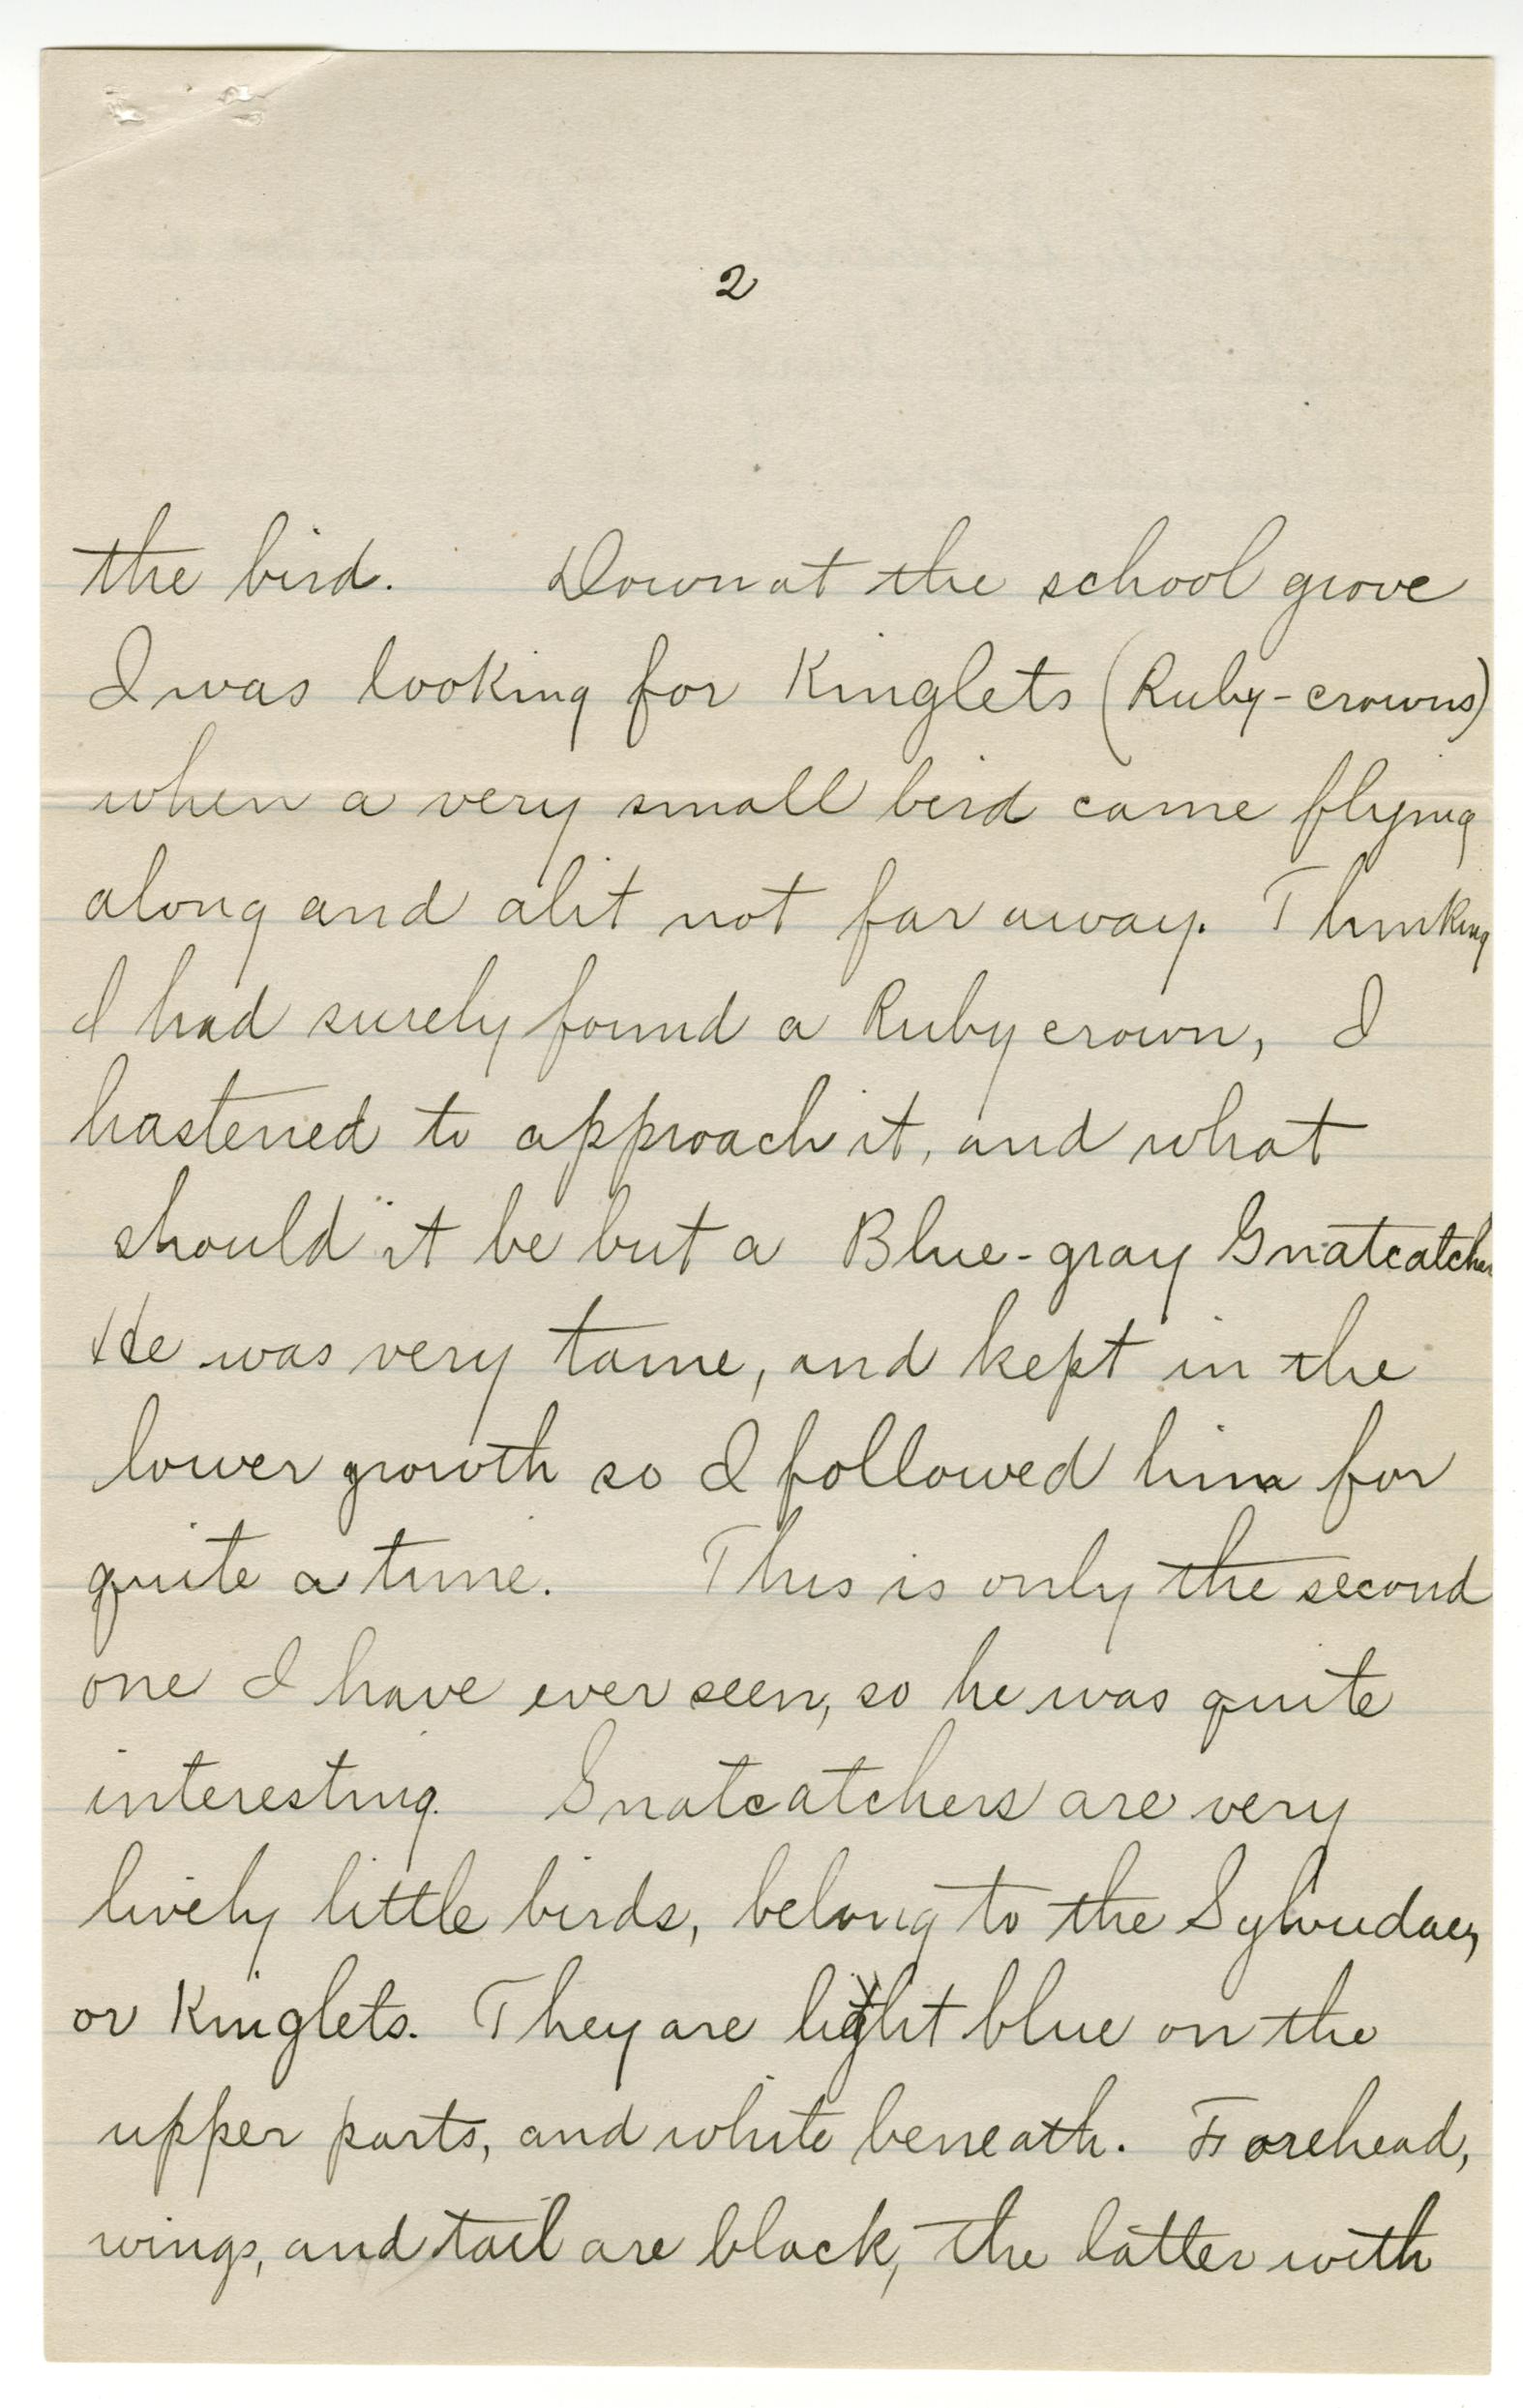 2
the bird. Down at the school grove
I was looking for Kinglets (Ruby-crowns)
when a very small bird came flying
along and alit not far away. Thinking
I had surely found a Ruby crown, I
hastened to approach it, and what
should it be but a Blue-gray Gnatcatcher
He was very tame, and kept in the
lower growth so I followed him for
quite a time. This is only the second
one I have ever seen, so he was quite
interesting. Gnatcatchers are very
lively little birds, belong to the Sylviidae,
or Kinglets. They are light blue on the
upper parts, and white beneath. Forehead,
wings, and tail are black, the latter with